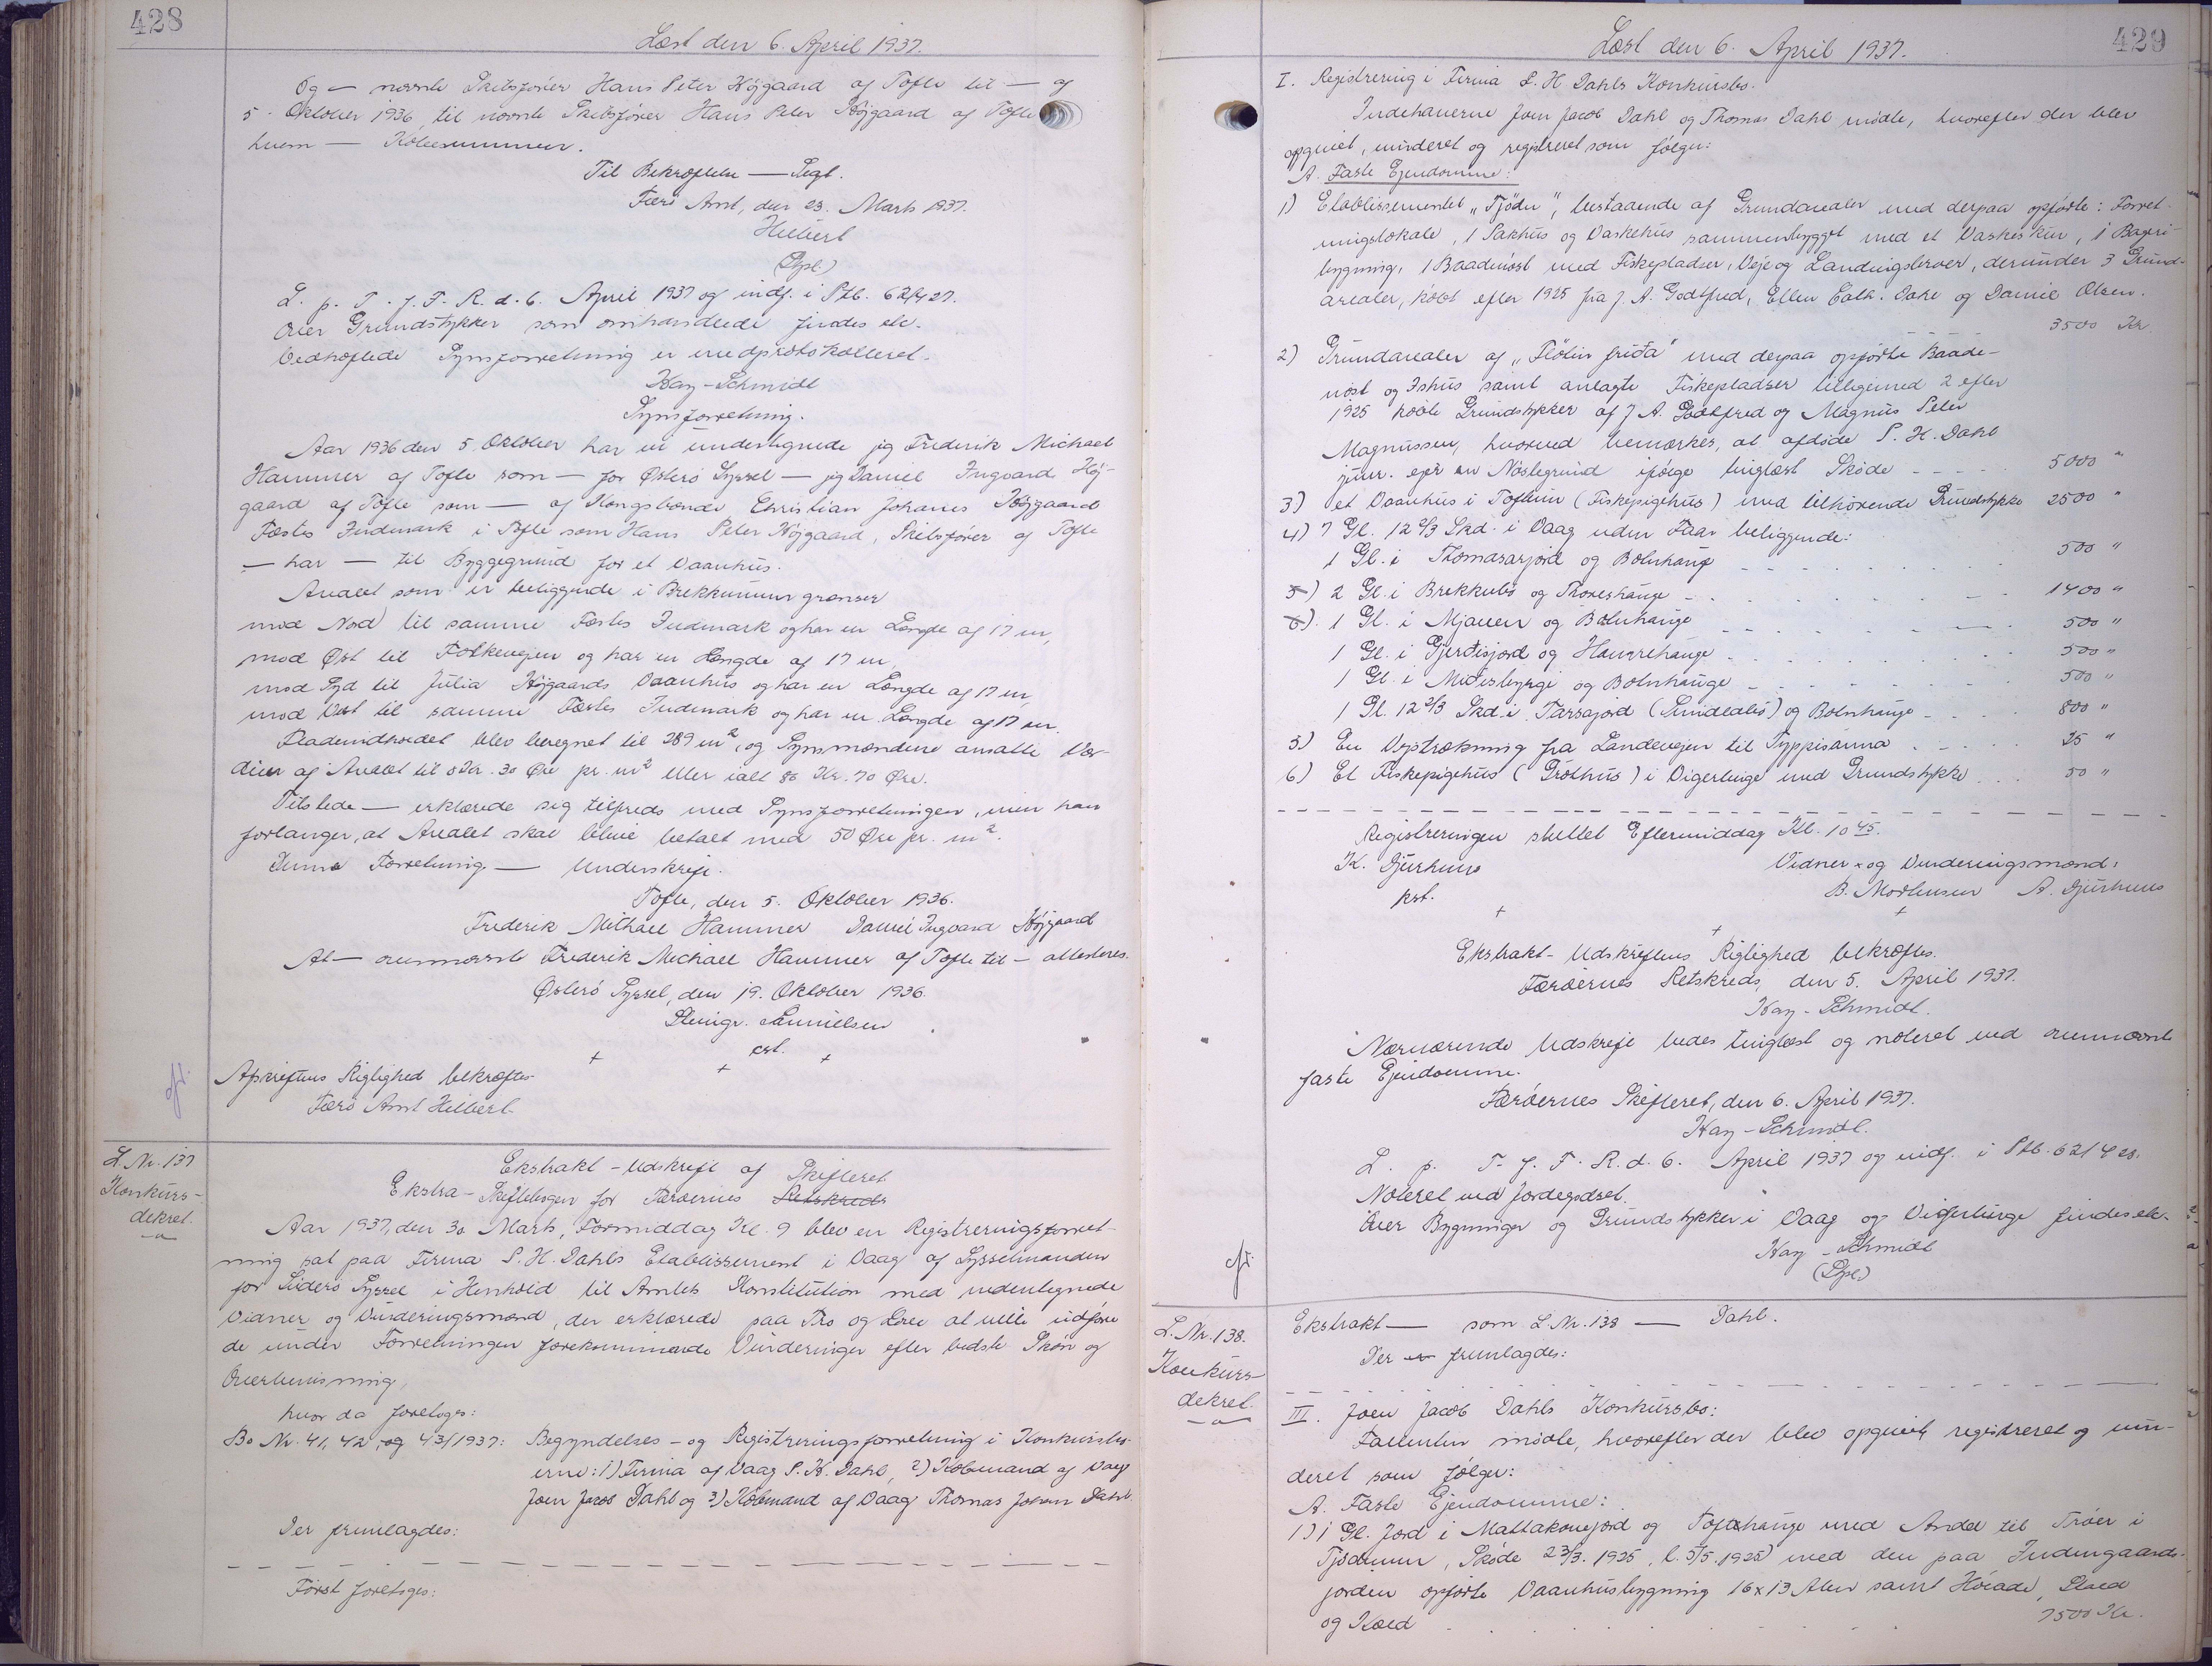 428
Læst den 6. April 1937.
Og — nævnte Skibsfører Hans Peter Højgaard af Tofte til — af
5. Oktober 1936 til nævnte Skibsfører Hans Peter Højgaard af Tofte
hvem — Købesummen.
Til Bekræftelse — Segl.
Færø Amt, den 23. Marts 1937.
Hilbert
(Spl.)
L. p. T. f. F. R. d. 6. April 1937 og indf. i Ptb. 62/427.
Over Grundstykker som omhandlede findes ele.
Vedhæftede Synsforretning er medprotokolleret.
Kay-Schmidt
Synsforretning.
Aar 1936 den 5. Oktober har vi undertegnede jeg Frederik Michael
Hammer af Tofte som — for Østerø Syssel — jeg Daniel Ingvard Høj-
gaard af Tofte som — af Kongsbonde Christian Johanes Højgaard
Fæstes Indmark i Tofte som Hans Peter Højgaard, Skibsfører af Tofte
— har — til Byggegrund for et Vaanhus.
Arealet som er beliggende i Brekkunum grænser
mod Nord til samme Fæstes Indmark og har en Længde af 17 m,
mod Øst til Folkevejen og har en Længde af 17 m,
mod Syd til Julia Højgaards Vaanhus og har en Længde af 17 m,
mod Vest til samme Fæstes Indmark og har en Længde af 17 m.
Fladeindholdet blev beregnet til 289 m², og Synsmændene ansatte Vær-
dien af Arealet til 0 Kr. 30 Øre pr. m² eller ialt 86 Kr. 70 Øre.
Tilstede — erklærede sig tilfreds med Synsforretningen, men han
forlanger, at Arealet skal blive betalt med 50 Øre pr. m².
Denne Forretning — Underskrift.
Tofte, den 5. Oktober 1936.
Frederik Michael Hammer Daniel Ingvard Højgaard
At — ovennævnte Frederik Michael Hammer af Tofte til — attesteres.
Østerø Syssel, den 19. Oktober 1936.
Steingr. Samuelsen
cst.
Afskriftens Rigtighed bekræftes
Færø Amt Hilbert
L. Nr. 137
Konkurs-
dekret.
Ekstrakt-Udskrift af Skifteret
Ekstra-Skiftebogen for Færøernes Retskreds
Aar 1937, den 30 Marts, Formiddag Kl. 9 blev en Registreringsforret-
ning sat paa Firma S. H. Dahls Etablissement i Vaag af Sysselmanden
for Suderø Syssel i Henhold til Amtets Konstitution med undertegnede
Vidner og Vurderingsmænd, der erklærede paa Tro og Love at ville udføre
de under Forretningen forekommende Vurderinger efter bedste Skøn og
Overbevisning,
hvor da foretoges:
Bo Nr. 41, 42, og 43/1937: Begyndelses- og Registreringsforretning i Konkursbo-
erne: 1) Firma af Vaag S. H. Dahl, 2) Købmand af Vaag
Joen Jacob Dahl og 3) Købmand af Vaag Thomas Johan Dahl.
Der fremlagdes:
Først foretoges:
429
Læst den 6. April 1937.
I. Registrering i Firma S. H Dahls Konkursbo.
Indehaverne Joen Jacob Dahl og Thomas Dahl mødte, hvorefter der blev
opgivet, vurderet og registreret som følger:
A. Faste Ejendomme:
1) Etablissementet "Tjødn", bestaaende af Grundarealer med derpaa opførte: Forret-
ningslokale, 1 Pakhus og Vaskehus sammenbygget med et Vaskeskur, 1 Bageri-
bygning, 1 Baadenøst med Fiskepladser, Veje og Landingsbroer, derunder 3 Grund-
arealer, købt efter 1925 fra J. A. Godtfred, Ellen Cath. Dahl og Daniel Olsen.
3500 Kr.
2) Grundarealer af "Fløtin friða" med derpaa opførte Baade-
nøst og Ishus samt anlagte Fiskepladser tilligemed 2 efter
1925 købte Grundstykker af J A. Godtfred og Magnus Peter
Magnussen, hvorved bemærkes, at afdøde S. H. Dahl
jun. ejer en Nøstegrund ifølge tinglæst Skøde 5000 "
3) et Vaanhus i Toftum (Fiskepigehus) med tilhørende Grundstykke 2500 "
4) 7 Gl. 12 2/3 Skd. i Vaag uden Faar beliggende:
1 Gl. i Thomasarjord og Bolnhauge 500 "
5) 2 Gl. i Brekkubø og Thoreshauge 1400 "
6). 1 Gl. i Mjauen og Bolnhauge 500 "
1 Gl. i Gjerdisjord og Hamrehauge 500 "
1 Gl. i Midisbyrgi og Bolnhauge 500 "
1 Gl. 12 2/3 Skd. i Tarsajord (Smidlabø) og Bolnhauge 800 "
5) En Vejstrækning fra Landevejen til Typpisanna 25 "
6) Et Fiskepigehus (Grothus) i Vigerbirge med Grundstykke 50 "
Registreringen sluttet Eftermiddag Kl. 10 45.
K. Djurhuus Vidner- og Vurderingsmænd:
kst. B. Mortensen A. Djurhuus
Ekstrakt-Udskriftens Rigtighed bekræftes.
Færøernes Retskreds, den 5. April 1937.
Kay-Schmidt.
Nærværende Udskrift bedes tinglæst og noteret ved ovennævnte
faste Ejendomme.
Færøernes Skifteret, den 6. April 1937.
Kay-Schmidt.
L. p. T. f. F. R. d. 6. April 1937 og indf. i Ptb. 62/428.
Noteret ved Jordegodset.
Over Bygninger og Grundstykker i Vaag og Vigerbirge findes ele.
Kay-Schmidt
(Spl.)
L. Nr. 138.
Konkurs-
dekret.
Ekstrakt — som L. Nr. 138 — Dahl.
Der fremlagdes:
III. Joen Jacob Dahls Konkursbo:
Fallenten mødte, hvorefter der blev opgivet, registreret og vur-
deret som følger:
A. Faste Ejendomme:
1) 1 Gl. Jord i Mattakonejord og Toftehauge med Andel til Trøer i
Tjødnum, (Skøde 23/3. 1925, l. 5/5. 1925) med den paa Indengaards-
jorden opførte Vaanhusbygning 16 x 13 Alen samt Hølade, Stald
og Kæld 7500 Kr.